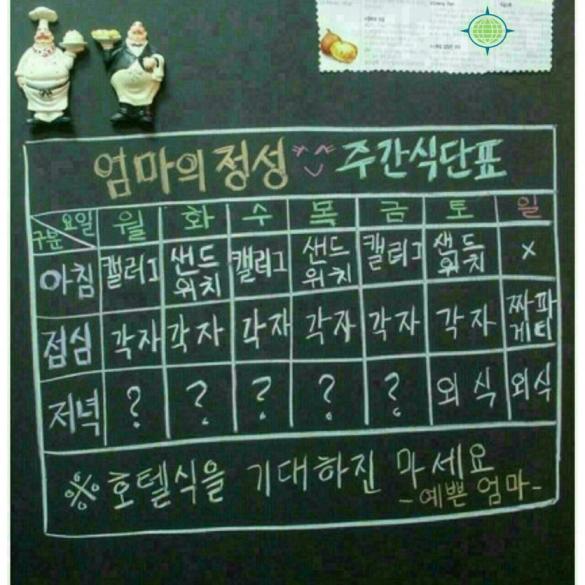 엄마의 정성 주간식단표
구분 요일 월 화 수 목 금 토 일
아침 캘러그 샌드위치 캘러그 샌드위치 캘러그 샌드위치 x
점심 각자 각자 각자 각자 각자 각자 짜파게티
저녁 ? ? ? ? ? 외식 외식
※ 호텔식을 기대하진 마세요
-예쁜 엄마-